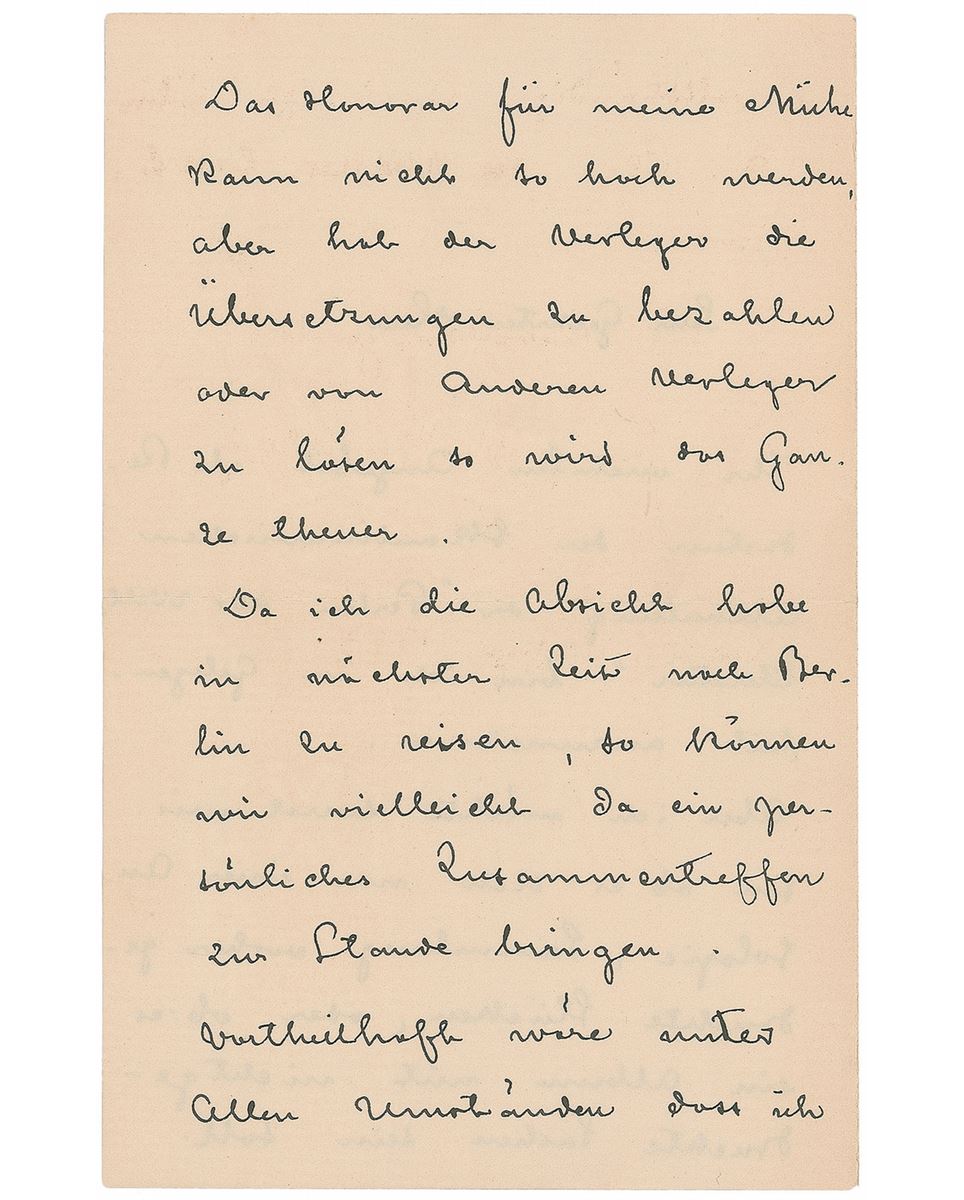 Das Honorar für meine Mühe
kann nicht so hoch werden,
aber hat der Verleger die
Übersetzungen zu bezahlen
oder von Anderen Verleger
zu lösen so wird das Gan-
ze theuer.
Da ich die Absicht habe
in nächster Zeit nach Ber-
lin zu reisen, so können
wir vielleicht da ein per-
sönliches Zusammentreffen
zur Stande bringen.
Vortheilhaft wäre unter
Allen Umständen dass ich